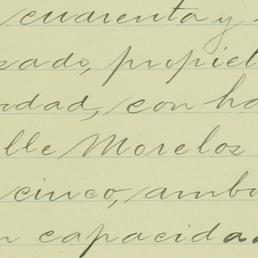 cuarenta y
sado, propiet
dad, con ha
lle Morelos
cinco, ambo
n capacidad